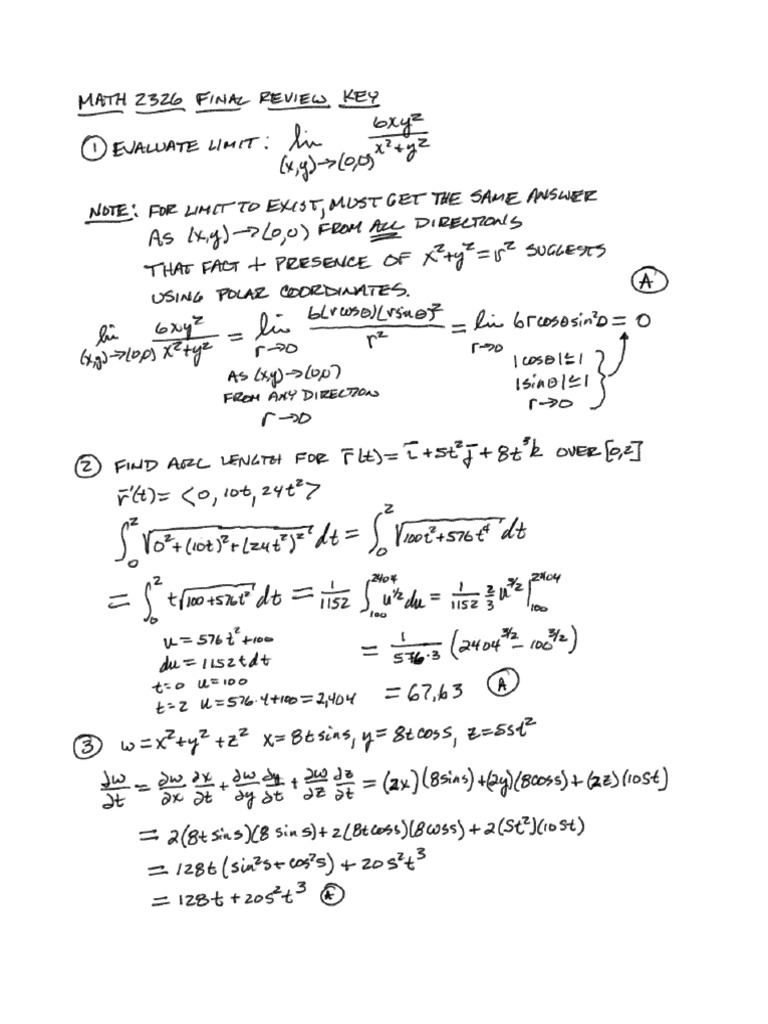 MATH 2326 FINAL REVIEW KEY
① EVALUATE LIMIT: lim (x,y)→(0,0) 6xy²/(x²+y²)
NOTE: FOR LIMIT TO EXIST, MUST GET THE SAME ANSWER
AS (x,y)→(0,0) FROM ALL DIRECTIONS
THAT FACT + PRESENCE OF x²+y²=r² SUGGESTS
USING POLAR COORDINATES.
Ⓐ
lim (x,y)→(0,0) 6xy²/(x²+y²) = lim r→0 6(rcosθ)(rsinθ)²/r² = lim r→0 6rcosθsin²θ = 0
AS (x,y)→(0,0)
FROM ANY DIRECTION
r→0
|cosθ|≤1
|sinθ|≤1
r→0
② FIND ARC LENGTH FOR r̄(t)= ī+5t²j̄+8t³k̄ OVER [0,2]
r̄'(t)= <0, 10t, 24t²>
∫₀² √(0²+(10t)²+(24t²)²) dt = ∫₀² √(100t²+576t⁴) dt
= ∫₀² t√(100+576t²) dt = 1/1152 ∫₁₀₀²⁴⁰⁴ u^(1/2) du = 1/1152 2/3 u^(3/2) |₁₀₀²⁴⁰⁴
u=576t²+100
du=1152tdt
t=0 u=100
t=2 u=576·4+100=2,404
= 1/(576·3) (2404^(3/2) − 100^(3/2))
= 67.63 Ⓐ
③ w=x²+y²+z² x=8tsins, y=8tcoss, z=5st²
∂w/∂t = ∂w/∂x ∂x/∂t + ∂w/∂y ∂y/∂t + ∂w/∂z ∂z/∂t = (2x)(8sins)+(2y)(8coss)+(2z)(10st)
= 2(8tsins)(8sins)+2(8tcoss)(8coss)+2(5t²)(10st)
= 128t(sin²s+cos²s)+20s²t³
= 128t+20s²t³ Ⓐ